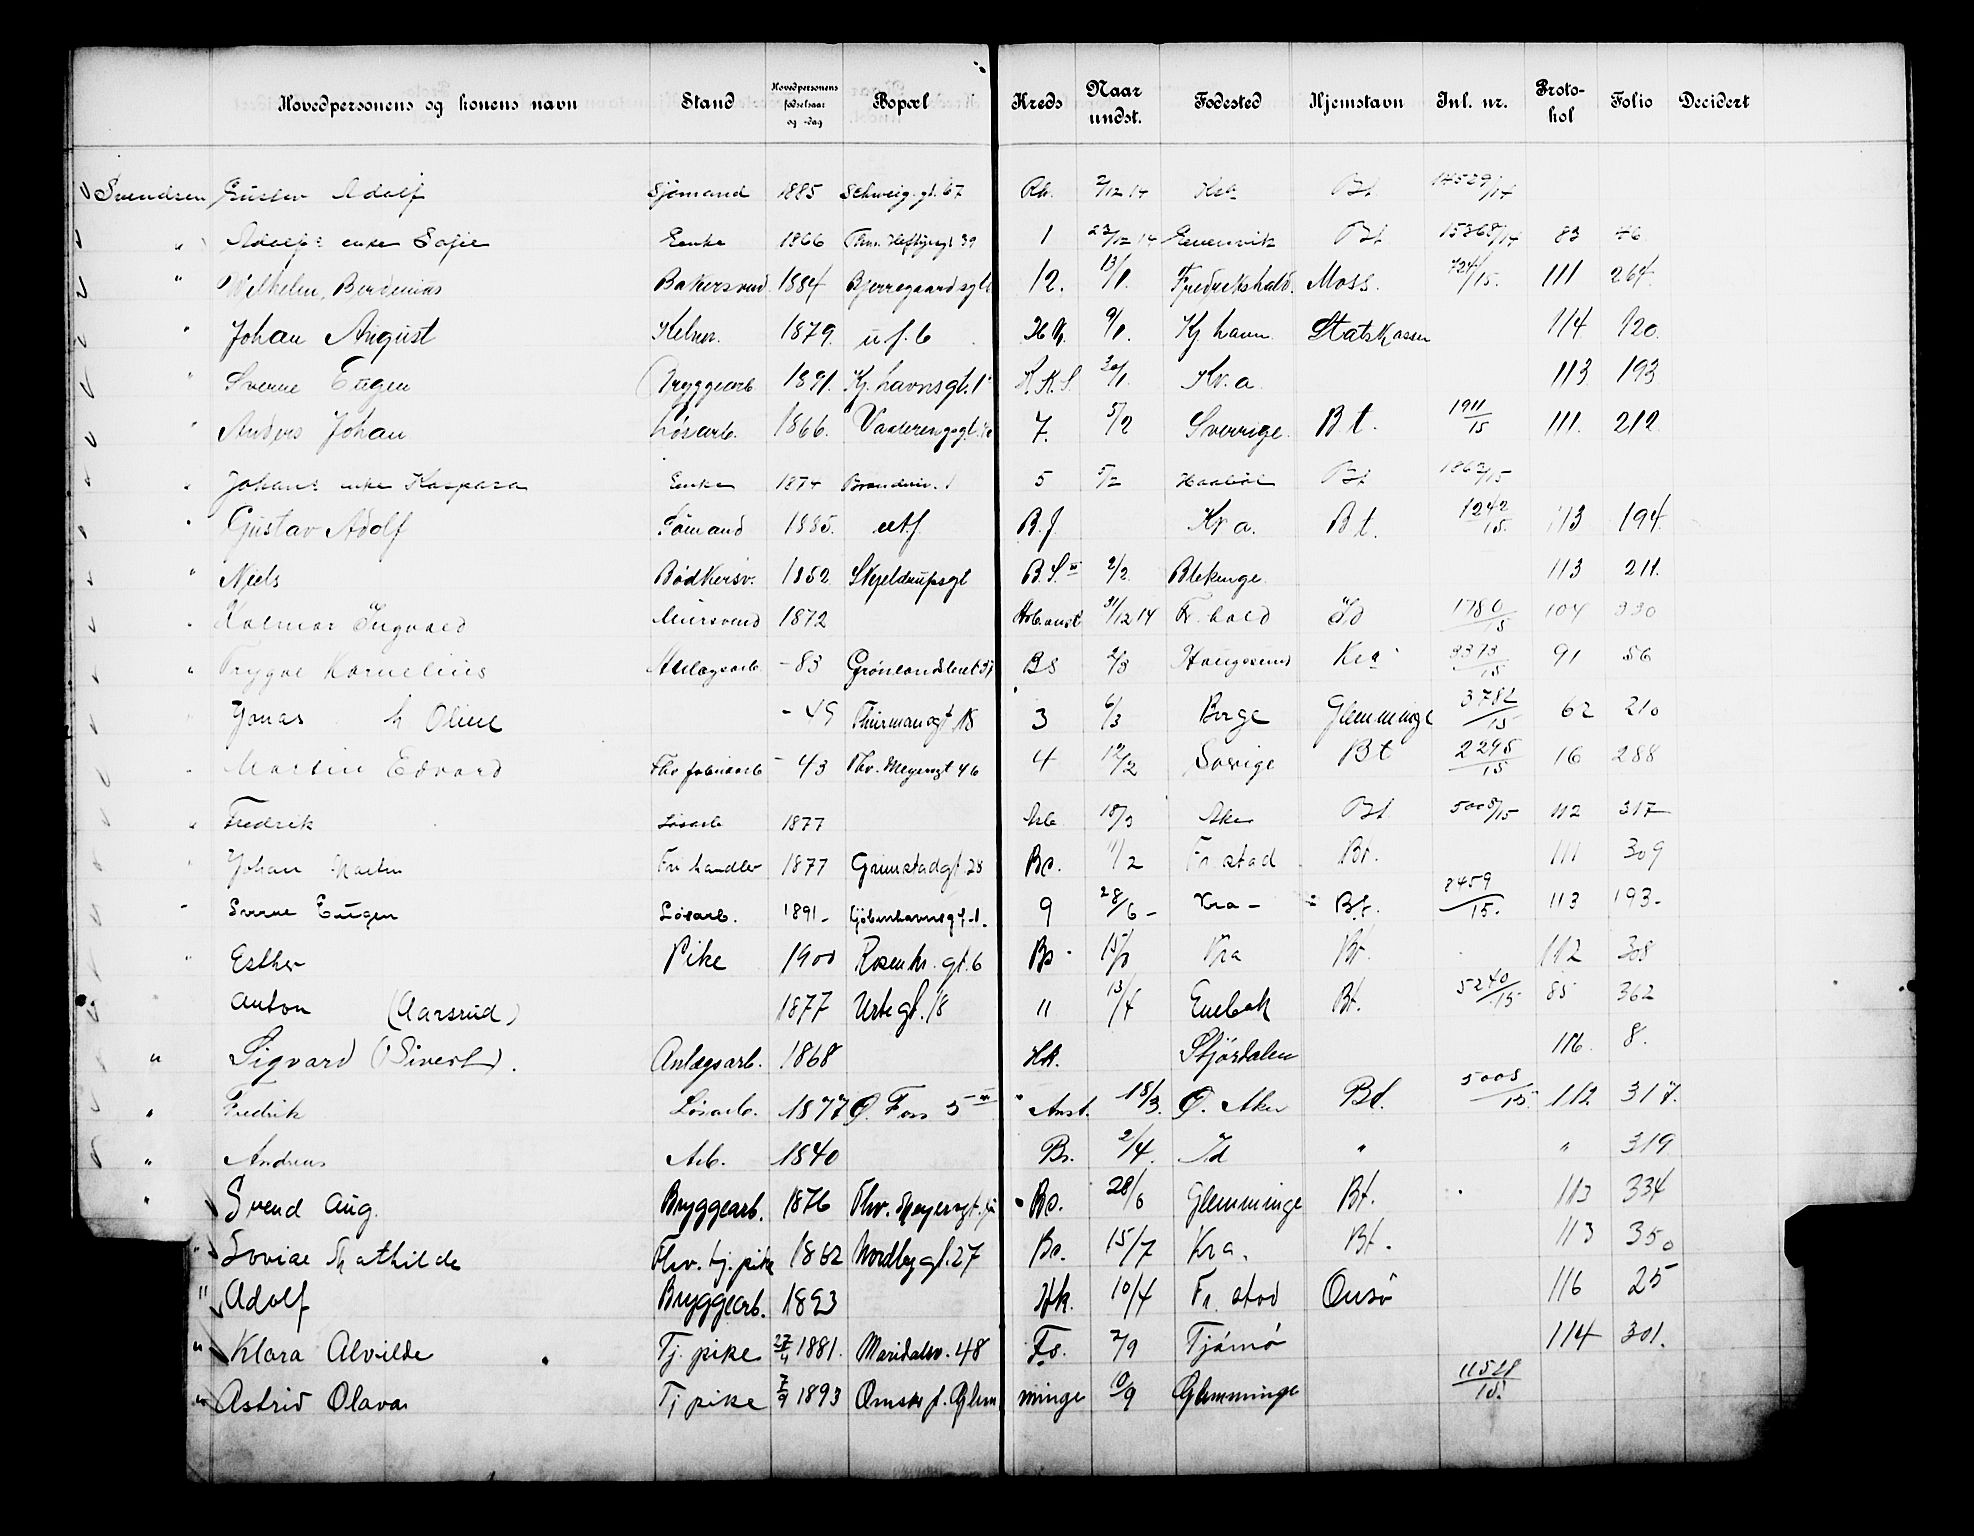 Hovedpersonens og konens navn Stand Hovedpersonens fødselsaar og -dag Bopæl Kreds Naar undst. Fødested Hjemstavn Inl. nr. Protokol Folio Decidert
Svendsen Gustav Adolf Sjömand 1885 Schweig. gt. 67 2/12 14 Bt 14529/14
" Adolfs enke Sofie Enke 1866 Thm. Heftyesgt 39 1 23/12 14 Bt 15368/14 83 46
" Wilhelm, Berdenius Bakersvend 1884 Bjerregaardsgt 12. 13/1. Fredrikshald. Moss. 724/15. 111 264.
" Johan August Kelner. 1879. u. f. b 9/1. Kj. havn Statskassen 114 120.
" Sverre Eugen Bryggearb 1891. Kj. havnsgt. 1 K.K.S. 30/1. Kr.a. 113 193
" Anders Johan Løsarb. 1866. Vaalerengsgt. 7. 5/2 Sverrige. Bt. 1911/15 111. 212
" Johans enke Kaspara Enke 1874 5 5/2 Bt 1862/15
" Gustav Adolf Sömand 1885. utf B.f. Kr a. Bt. 1242/15. 113 194.
" Niels Bødkersv. 1852 Skjeldrupsgt B.S. 2/2. Blekinge. 113 211.
" Halmar Ingvald Mursvend 1872 Arb.anst 31/12 14 Fr. hald Id 1780/15 104 330
" Trygve Kornelius Anlægsarb - 83 Grönlandsleret 37 Bs 2/3 Haugesund Kra 3373/15 91 56
" Jonas h Oline - 49 Thurmansgt 18 3 6/3 Borge Glemminge 3782/15 62 210
" Martin Edvard Fhv fabrikarb - 43 Thv. Meyersgt 46 4 19/2 Sverige Bt 2295/15 16 288
" Fredrik Løsarb 1877 Arb 18/3 Aker Bt 5008/15 112 317
" Johan Martin Fri handler 1877 Grimstadgt. 28 Bs. 11/2 Fr. stad Bt. 111 309
" Sverre Eugen Løsarb. 1891- Kjöbenhavnsgt. 1. 9 28/6- Kra - Bt. 8459/15. 113 193-
" Esther Pike 1900 Rosenkr. gt. 6 Bs - Kra Bt. 112 308
Anton (Aarsrud) 1877 Urtegt. 18 11 13/4 Enebak Bt. 5240/15 85 362
" Sigvard (Sivert). Anlægsarb. 1868 Hk. Stjørdalen 116. 8.
" Fredrik Løsarb. 1877 Ø. Foss 5 " Anst. 18/3. Ø. Aker Bt. 5008/15. 112 317.
" Andreas Arb. 1840 Bs. 2/4. Id " " 319
" Svend Aug. Bryggearb. 1876 Thv. Meyersgt. Bs. 28/6 Glemminge Bt. 113 334
" Lovise Mathilde Fhv. tj. pike 1862 Nordbygt. 27 Bs. 15/7 Kra. Bt. 113 350
" Adolf Bryggearb. 1893 Hk. 10/4 Fr. stad Onsö 116 25
" Klara Alvilde Tj. pike 27/4 1881. Maridalsv. 48 Fs. 2/9 Tjömö 114 301.
" Astrid Olava Tj pike 7/9 1893 Omstr f. Glemminge 9/9 Glemminge 11528/15.